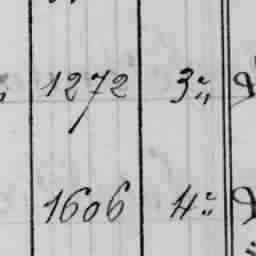 1272 3.
1606 4.